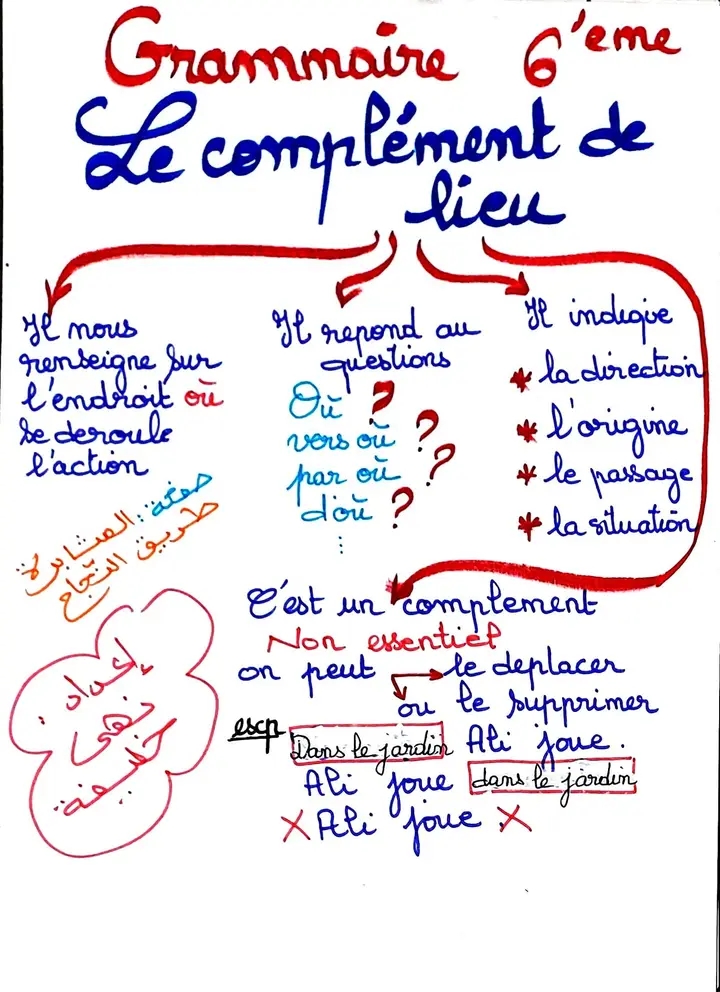 Grammaire 6'eme
Le complément de
lieu
Il nous
renseigne sur
l'endroit où
se deroule
l'action
Il repond au
questions
Où ?
vers où ?
par où ?
d'où ?
⋮
Il indique
* la direction
* l'origine
* le passage
* la situation
صفحة: المثابرة
طريق النجاح
C'est un complement
Non essentiel
on peut → le deplacer
ou le supprimer
إعداد:
نهى
خليفة
exp Dans le jardin Ali joue.
Ali joue dans le jardin
X Ali joue X